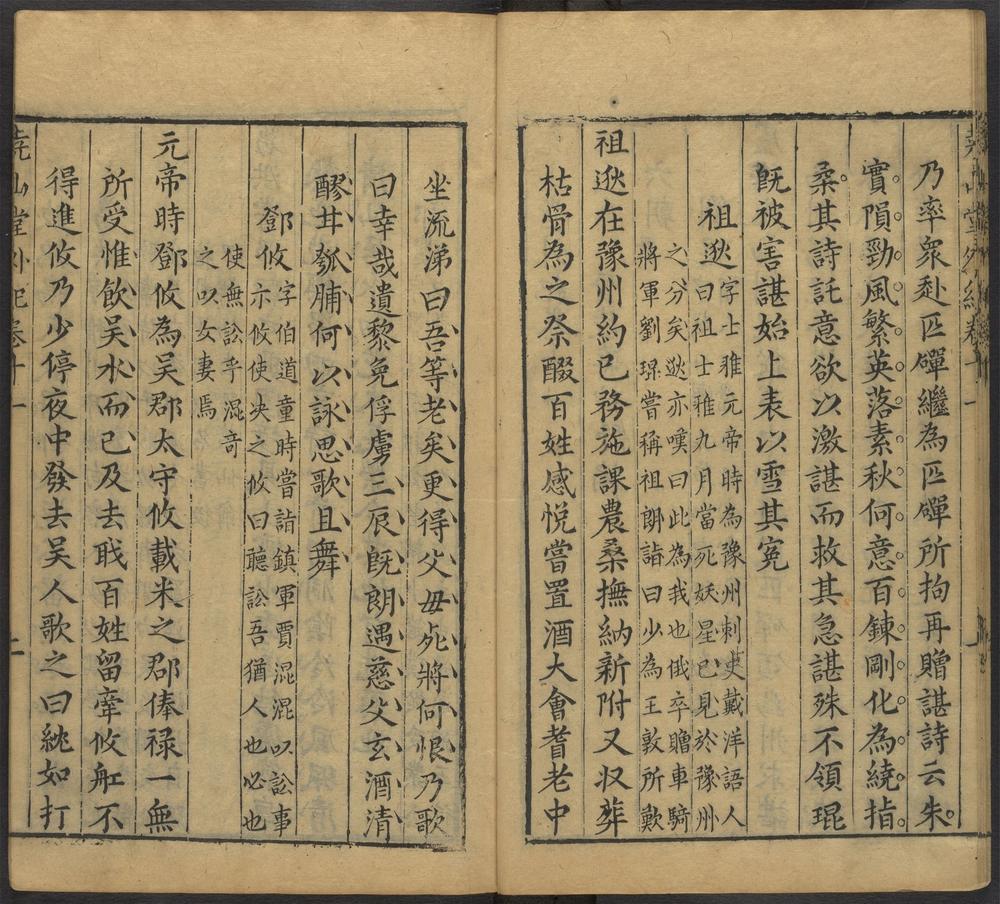 乃率衆赴匹磾繼為匹磾所拘再贈諶詩云朱
實隕勁風繁英落素秋何意百鍊剛化為繞指
柔其詩託意欲以激諶而救其急諶殊不領琨
旣被害諶始上表以雪其寃
祖逖字士雅元帝時為豫州刺史戴洋語人
曰祖士雅九月當死妖星已見於豫州
之分矣逖亦嘆曰此為我也俄卒贈車騎
將軍劉琨嘗稱祖朗詣曰少為王敦所歎
祖逖在豫州約已務施課農桑撫納新附又収葬
枯骨為之祭醊百姓感悅嘗置酒大會耆老中
坐流涕曰吾等老矣更得父母死將何恨乃歌
曰幸哉遺黎免俘虜三辰旣朗遇慈父玄酒清
醪甘瓠脯何以詠思歌且舞
鄧攸字伯道童時嘗詣鎮軍賈混混以訟事
示攸使决之攸曰聽訟吾猶人也必也
使無訟乎混奇
之以女妻焉
元帝時鄧攸為吳郡太守攸載米之郡俸禄一無
所受惟飲吳水而已及去戝百姓留牽攸舡不
得進攸乃少停夜中發去吳人歌之曰紞如打
堯山堂外紀卷十一 二